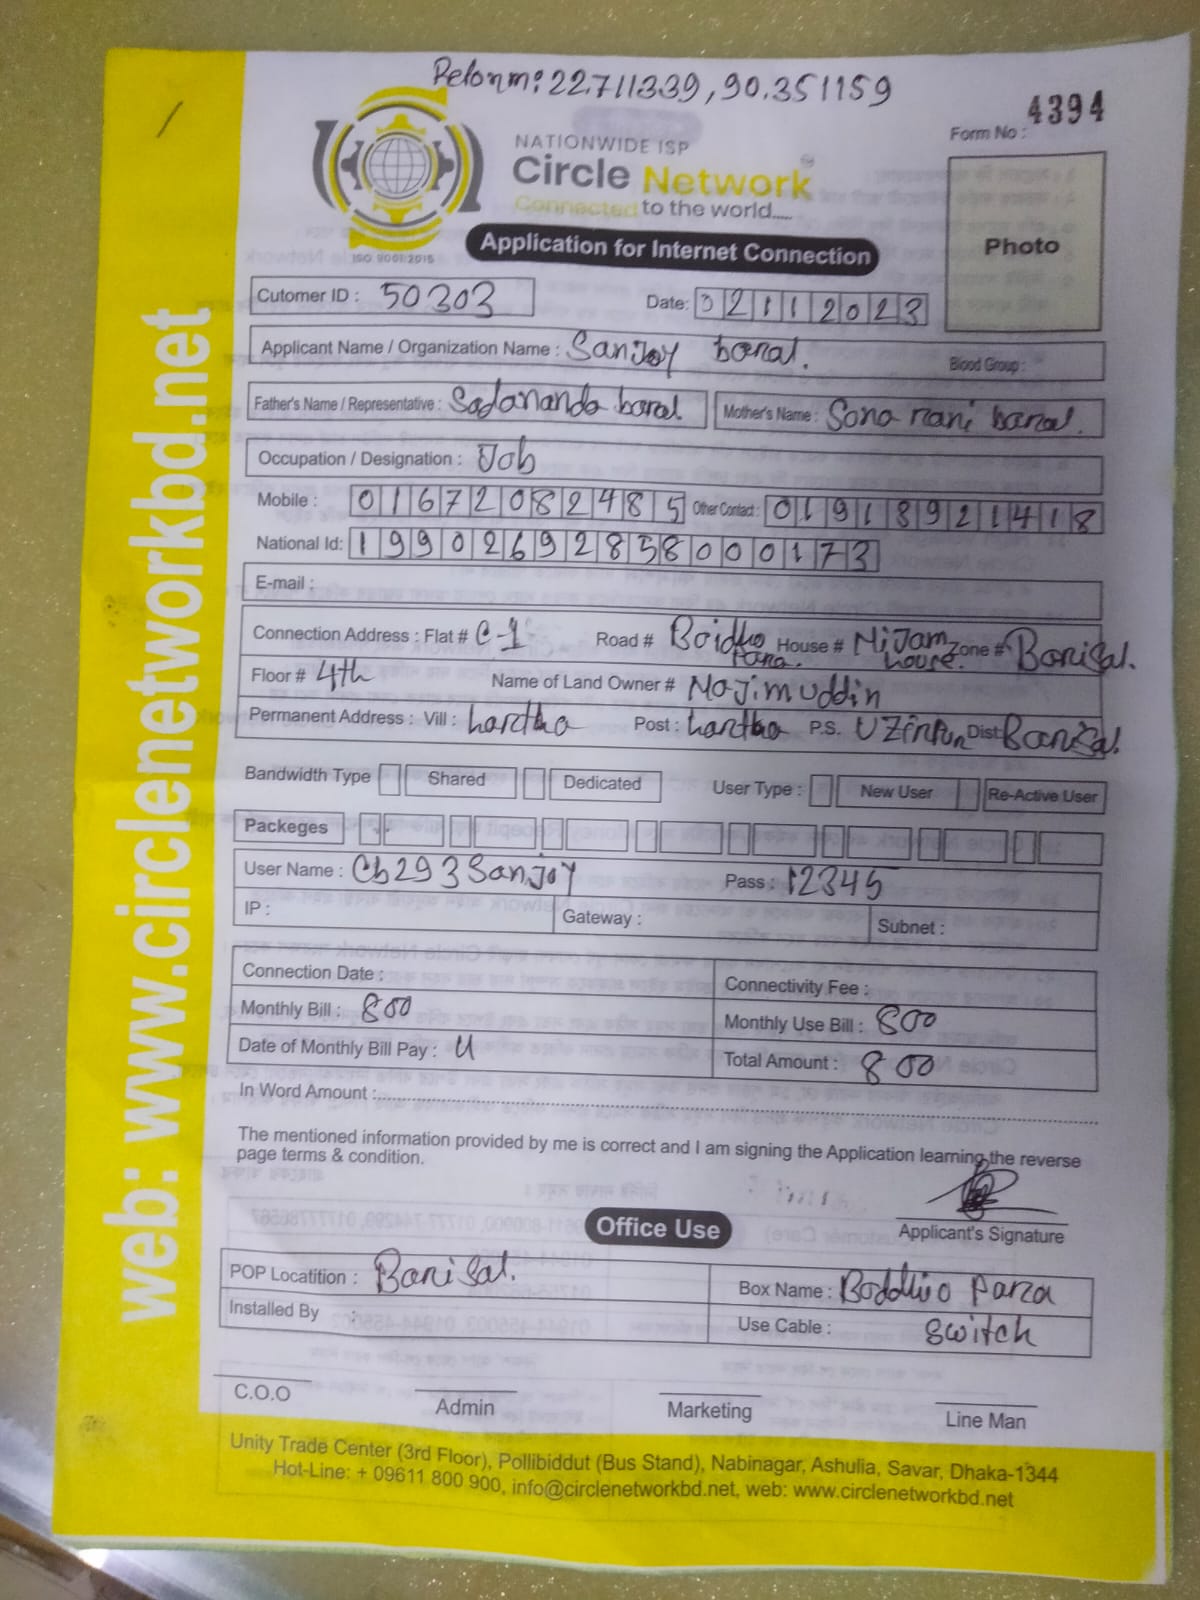 Pelonm: 22.711339, 90.351159
4394
Form No :
NATIONWIDE ISP
Circle Network
Connected to the world.....
ISO 9001:2015
Application for Internet Connection
Photo
Cutomer ID : 50303 Date: 02112023
Applicant Name / Organization Name : Sanjoy baral. Blood Group :
Father's Name / Representative : Sadananda baral Mother's Name : Sona rani baral.
Occupation / Designation : Job
Mobile : 01672082485 Other Contact : 01918921418
National Id: 19902692858000173
E-mail :
Connection Address : Flat # C-1 Road # Boidho Para. House # Nijam house. Zone # Barisal.
Floor # 4th Name of Land Owner # Najimuddin
Permanent Address : Vill : hartha Post : hartha P.S. Uzirpur Dist Barisal.
Bandwidth Type Shared Dedicated User Type : New User Re-Active User
Packeges
User Name : Cb293Sanjoy Pass : 12345
IP : Gateway : Subnet :
Connection Date : Connectivity Fee :
Monthly Bill : 800 Monthly Use Bill : 800
Date of Monthly Bill Pay : Total Amount : 800
In Word Amount :
The mentioned information provided by me is correct and I am signing the Application learning the reverse
page terms & condition.
Applicant's Signature
Office Use
POP Locatition : Barisal. Box Name : Boddho Para
Installed By Use Cable : Switch
C.O.O Admin Marketing Line Man
Unity Trade Center (3rd Floor), Pollibiddut (Bus Stand), Nabinagar, Ashulia, Savar, Dhaka-1344
Hot-Line: + 09611 800 900, info@circlenetworkbd.net, web: www.circlenetworkbd.net
web: www.circlenetworkbd.net